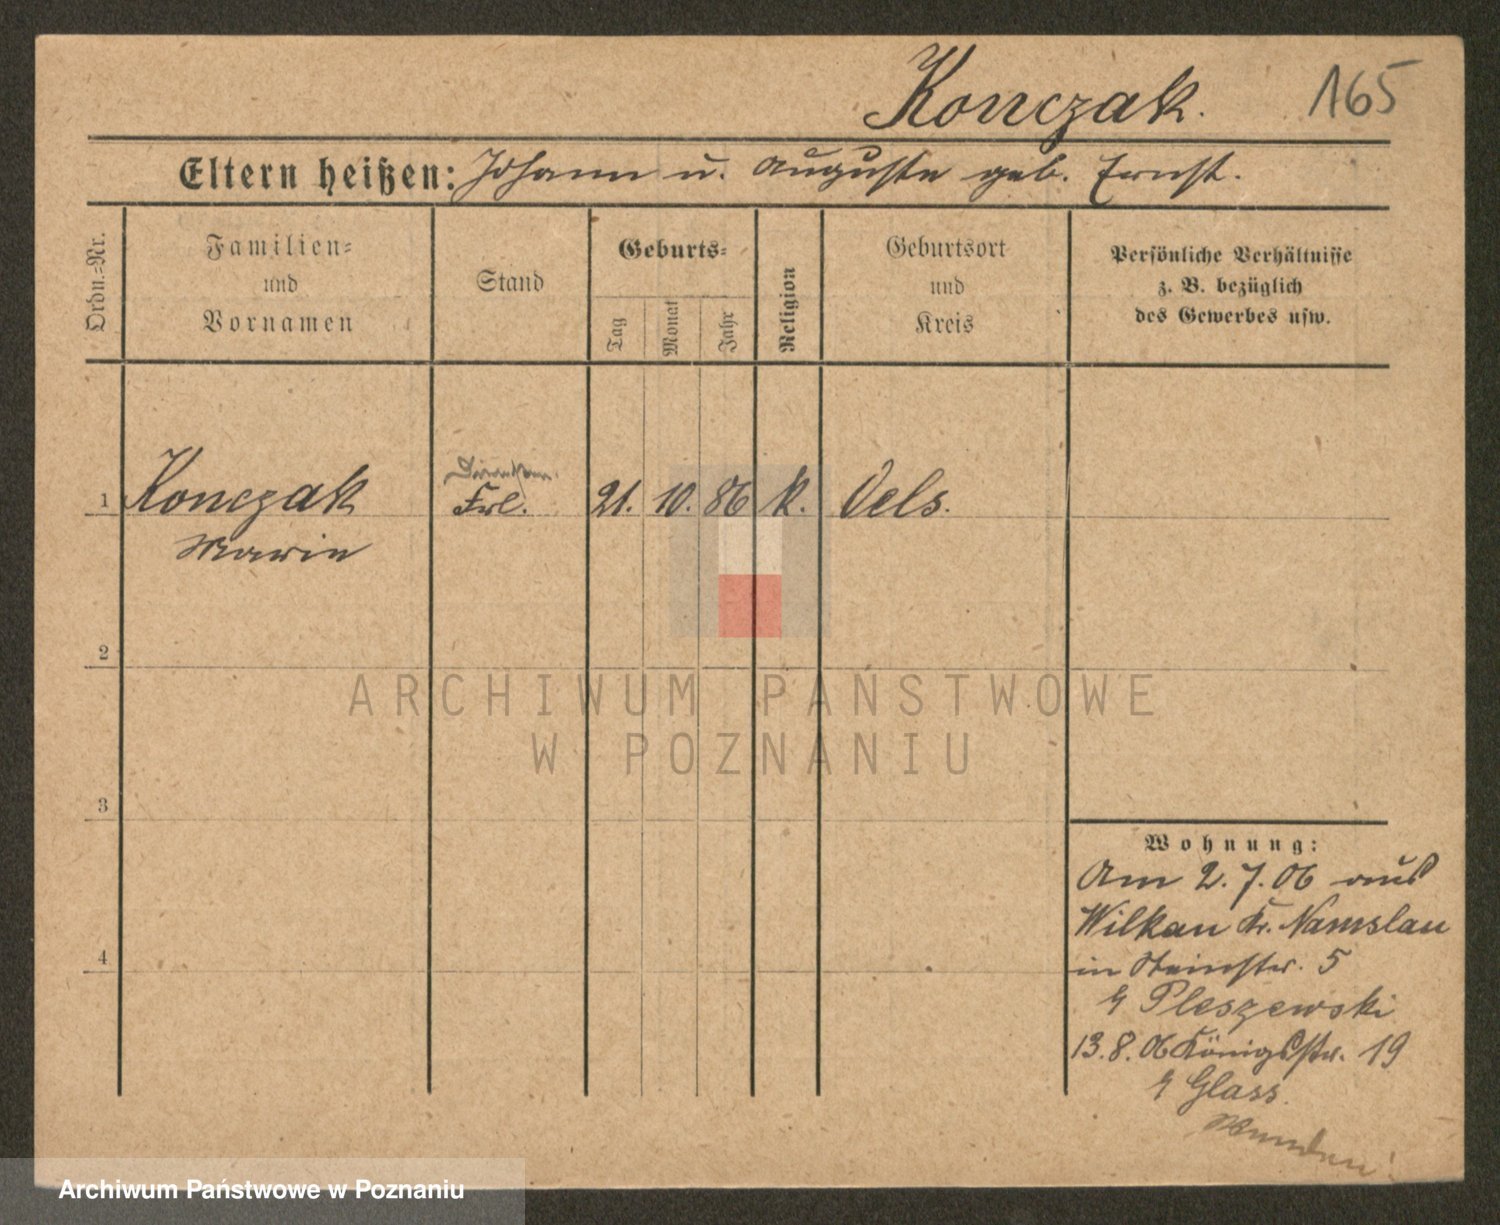 Konczak. 165
Eltern heißen: Johann u. Auguste geb. Ernst.
Ordn.=Nr.
Familien=
und
Vornamen
Stand
Geburts=
Tag
Monat
Jahr
Religion
Geburtsort
und
Kreis
Persönliche Verhältnisse
z. B. bezüglich
des Gewerbes usw.
1 Konczak Frl. 21. 10. 86 k. Oels.
Marie
2
3
4
Wohnung:
Am 2.7.06 aus
Wilkau Kr. Namslau
in Steinstr. 5
Pleszewski
13.8.06 Königsstr. 19
Glass.
ARCHIWUM PAŃSTWOWE
W POZNANIU
Archiwum Państwowe w Poznaniu